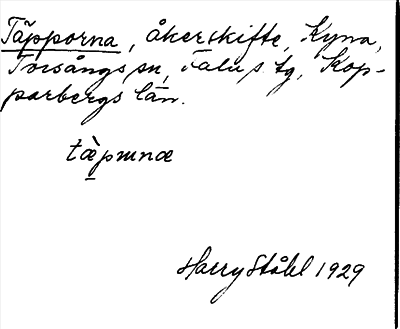 Täpporna, åkerskifte, Kyna,
Torsångs sn, Falu s tg, Kop-
parbergs län.
tæ̀pmnæ
Harry Ståhl 1929